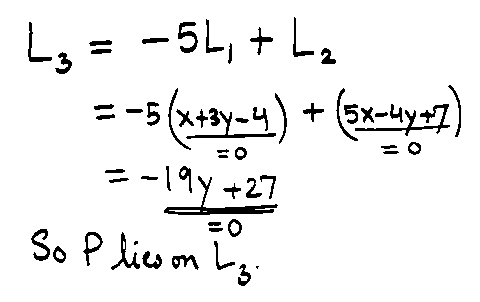 L₃ = -5L₁ + L₂
= -5(x+3y-4) + (5x-4y+7)
=0 =0
= -19y +27
=0
So P lies on L₃.